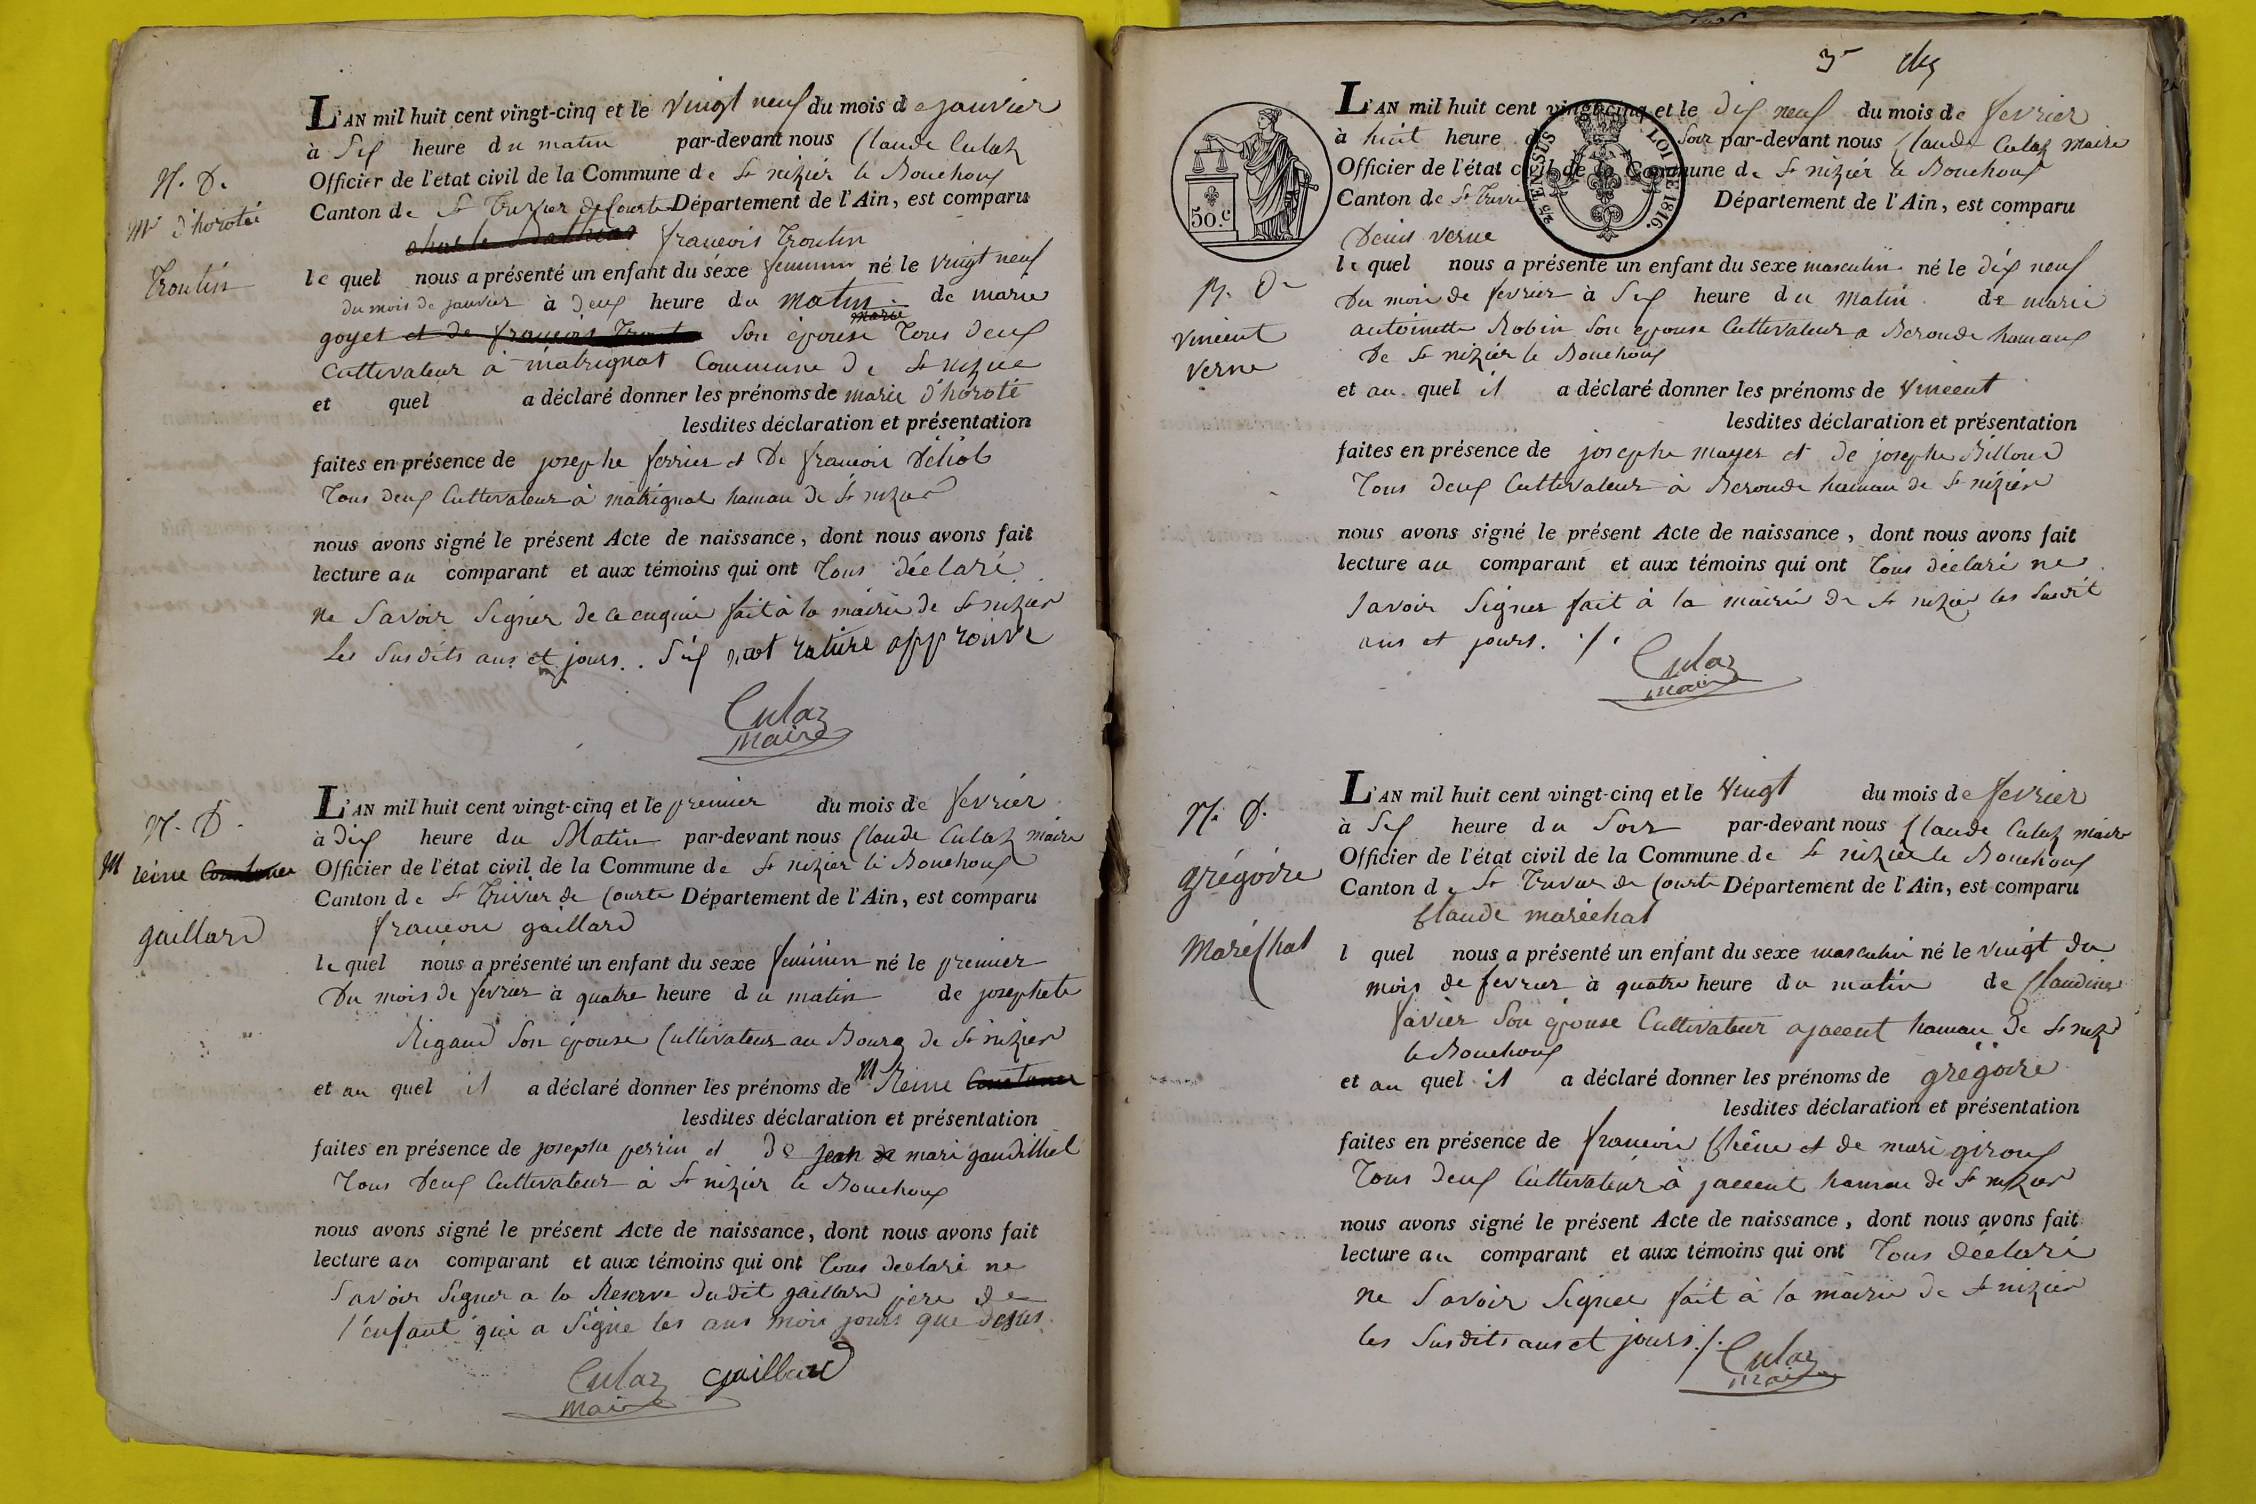 L'AN mil huit cent vingt-cinq et le vingt neuf du mois de janvier
à Six heure du matin par-devant nous Claude Culaz
Officier de l'état civil de la Commune de St nizier le Bouchoux
Canton de St Trivier de Courte Département de l'Ain, est comparu
francois Troutin
le quel nous a présenté un enfant du sexe feminin né le vingt neuf
du mois de janvier à deux heure du matin de marie
goyet et de francois Son épouse Tous deux
Cultivateur à matrignat Commune de St nizier
et quel a déclaré donner les prénoms de marie d'horoté
lesdites déclaration et présentation
faites en présence de josephe ferrier et De francois
Tous deux Cultivateur à matrignat hamau de St nizier
nous avons signé le présent Acte de naissance, dont nous avons fait
lecture au comparant et aux témoins qui ont Tous déclaré
ne Savoir Signer de ce enquie fait à la mairie de St nizier
les Susdits ans et jours. Six mot rature approuve
Culaz
maire
N. D.
M d'horoté
Troutin
L'AN mil huit cent vingt-cinq et le premier du mois de fevrier
à dix heure du Matin par-devant nous Claude Culaz maire
Officier de l'état civil de la Commune de St nizier le Bouchoux
Canton de St Trivier de Courte Département de l'Ain, est comparu
francois gaillard
le quel nous a présenté un enfant du sexe feminin né le premier
Du mois de fevrier à quatre heure du matin de josephete
Rigaud Son épouse Cultivateur au Bourg de St nizier
et au quel il a déclaré donner les prénoms de M Reine
lesdites déclaration et présentation
faites en présence de josephe perrin et De jean mari gaudilliet
Tous Deux Cultivateur à St nizier le Bouchoux
nous avons signé le présent Acte de naissance, dont nous avons fait
lecture au comparant et aux témoins qui ont Tous declaré ne
Savoir Signer a la Reserve dudit gaillard pere de
l'enfant qui a Signe les ans mois jours que desus.
Culaz gaillard
maire
N. D.
M reine
gaillard
3
50.c
LOI DE 1816.
L'AN mil huit cent vingt-cinq et le dix neuf du mois de fevrier
à huit heure du Soir par-devant nous Claude Culaz maire
Officier de l'état civil de la Commune de St nizier le Bouchoux
Canton de St Trivier Département de l'Ain, est comparu
Denis verne
le quel nous a présenté un enfant du sexe masculin né le dix neuf
Du mois de fevrier à Six heure du matin de marie
antoinette Robin Son epouse Cultivateur a Beronde hamaux
De St nizier le Bouchoux
et au quel il a déclaré donner les prénoms de vincent
lesdites déclaration et présentation
faites en présence de josephe mayer et de josephe Billoud
Tous deux Cultivateur à Beronde hamau de St nizier
nous avons signé le présent Acte de naissance, dont nous avons fait
lecture au comparant et aux témoins qui ont Tous déclaré ne
Savoir Signer fait à la mairie de St nizier les Susdit
ans et jours. /.
Culaz
maire
N. D.
vincent
verne
L'AN mil huit cent vingt-cinq et le vingt du mois de fevrier
à Six heure du Soir par-devant nous Claude Culaz maire
Officier de l'état civil de la Commune de St nizier le Bouchoux
Canton de St Trivier de Courte Département de l'Ain, est comparu
Claude maréchal
l quel nous a présenté un enfant du sexe masculin né le vingt du
mois de fevrier à quatre heure du matin de Claudine
favier Son épouse Cultivateur ajacent hamau De St niz
le Bouchoux
et au quel il a déclaré donner les prénoms de grégoire
lesdites déclaration et présentation
faites en présence de francois Chêne et de mari giroux
Tous deux Cultivateur à jacent hamau de St nizier
nous avons signé le présent Acte de naissance, dont nous avons fait
lecture au comparant et aux témoins qui ont Tous déclaré
ne Savoir Signer fait à la mairie de St nizier
les Susdits ans et jours. /.
Culaz
maire
N. D.
grégoire
Maréchal